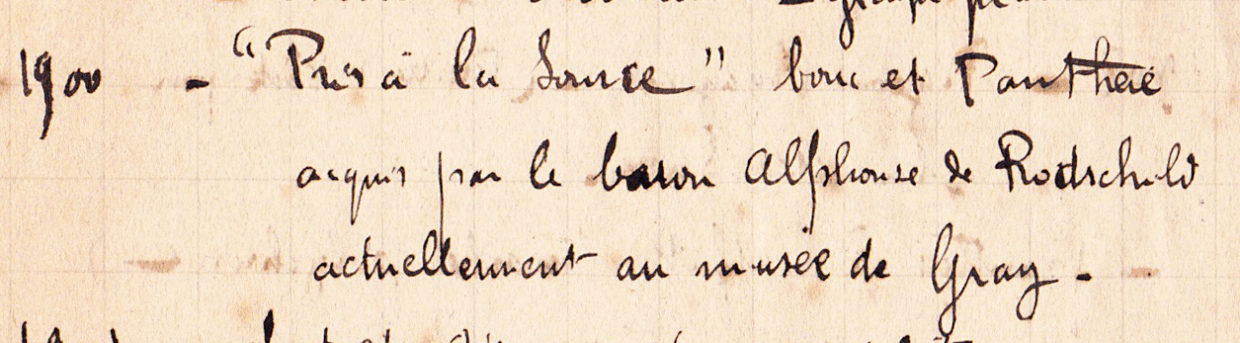 1900 - "Pris à la Source" bouc et Panthère
acquis par le baron Alphonse de Rodschild
actuellement au musée de Gray -